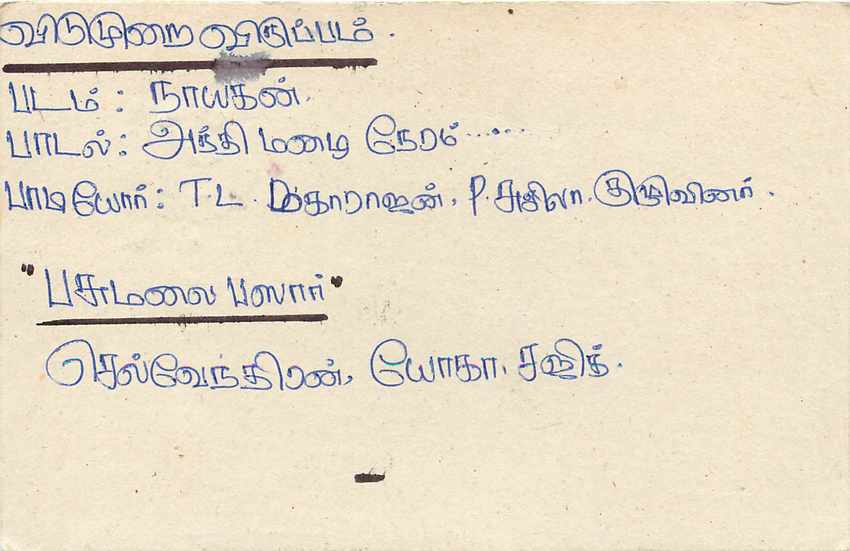 விடுமுறை விருப்பம்.
படம் : நாயகன்.
பாடல் : அந்தி மழை நேரம்......
பாடியோர் : T. L. மகாராஜன், P. சுசிலா, குழுவினர்.
"பசுமலை பஸார்"
செல்வேந்திரன், யோகா, சஜித்.